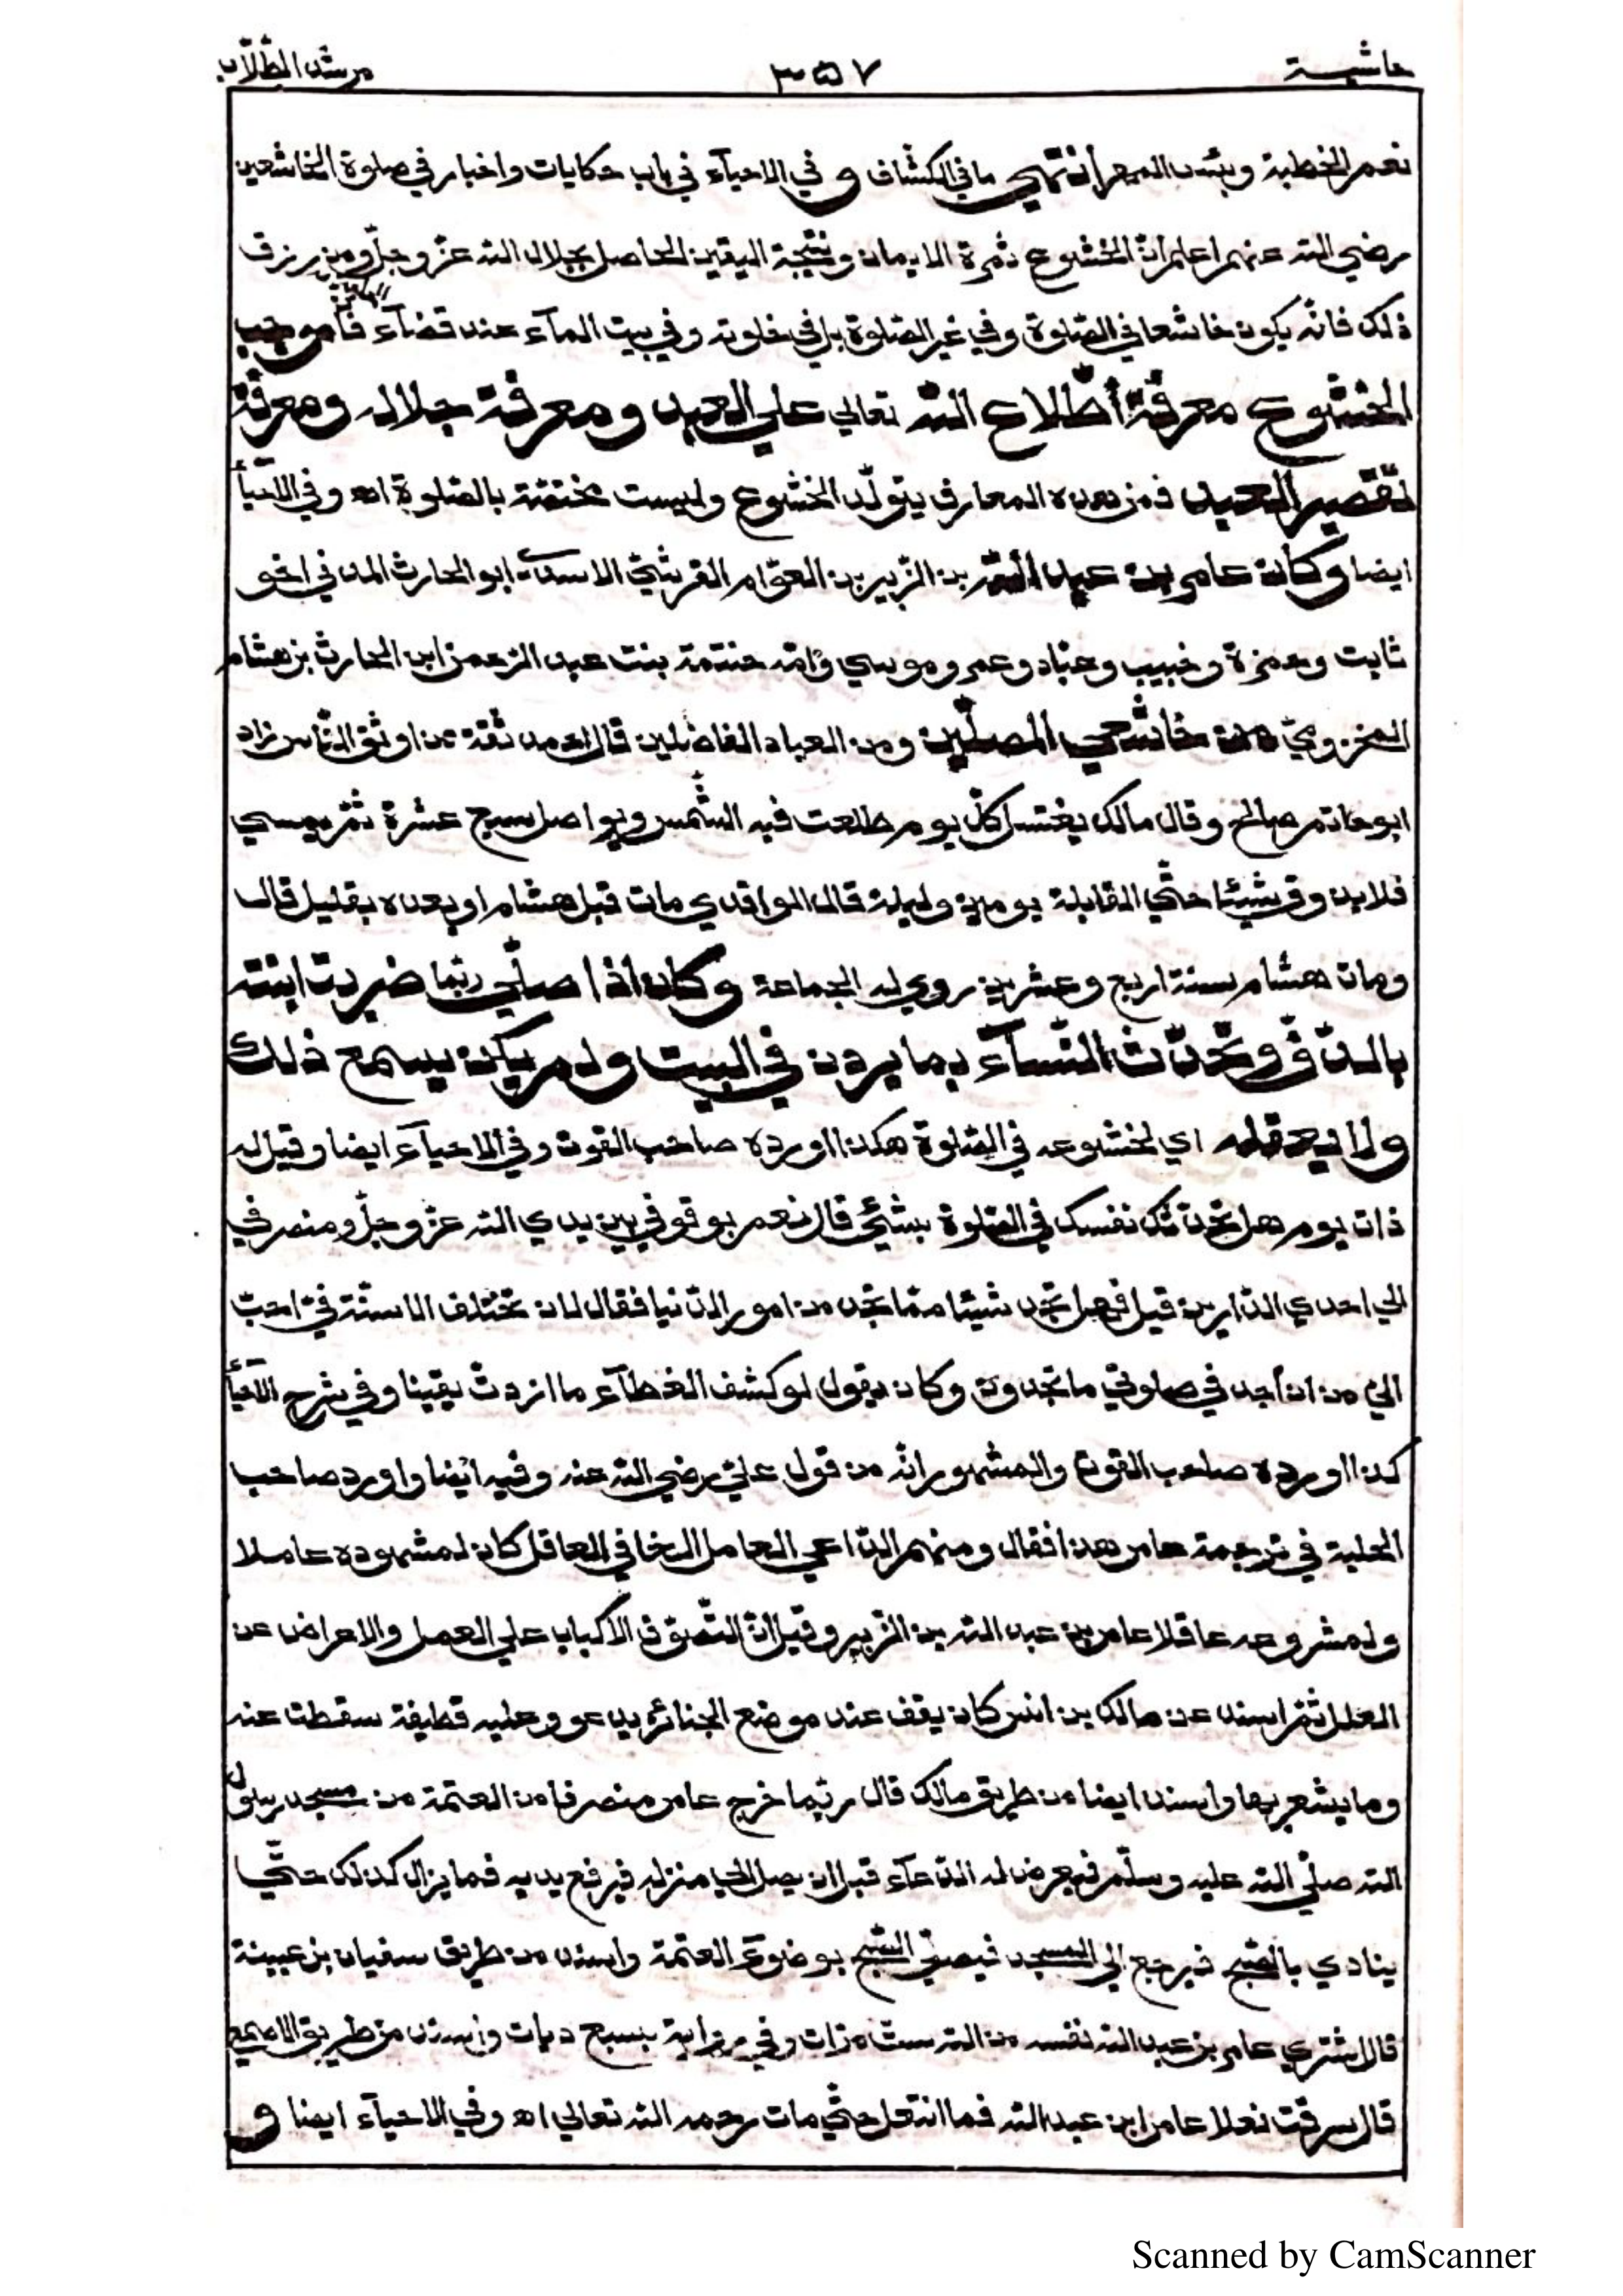 حاشية ٣٥٧ مرشد الطّلّاب
نعم الخطبة وبئس المهر أنتهى ما في الكشّاف و في الاحيآء في باب حكايات واخبار في صلوة الخاشعين
رضي الله عنهم اعلم أنّ الخشوع ثمرة الايمان ونتيجة اليقين الحاصل بجلال الله عزّ وجلّ ومن رزق
ذلك فانّه يكون خاشعا في الصّلوة وفي غير الصّلوة بل في خلوته وفي بيت المآء عند قضآء الحاجة فأموجب
الخشوع معرفة أطّلاع الله تعالي علي العبد ومعرفة جلاله ومعرفة
تقصير العبد فمن هذه المعارف يتولّد الخشوع وليست مختصّة بالصّلوة اه وفي الاحيآء
ايضا وكان عامر بن عبد الله بن الزّبير بن العوّام القرشيّ الاسديّ ابو الحارث المدني اخو
ثابت وحمزة وخبيب وعبّاد وعمر وموسي وامّه حنتمة بنت عبد الرّحمن ابن الحارث بن هشام
المخزوميّ من خاشعي المصلّين ومن العباد الفاضلين قال احمد ثقة من اوثق النّاس زاد
ابو حاتم صالح وقال مالك يغتسل كلّ يوم طلعت فيه الشّمس ويواصل سبع عشرة ثمّ يمسي
فلا يذوق شيئا حتّي القابلة يومين وليلة قال الواقدي مات قبل هشام او بعده بقليل قال
ومات هشام سنة اربع وعشرين روي له الجماعة وكان اذا صلّي ربّما ضربت ابنته
بالدّفّ وتحدّث النّسآء بما يردن في البيت ولم يكن يسمع ذلك
ولا يعقله اي لخشوعه في الصّلوة هكذا اورده صاحب القوت وفي الاحيآء ايضا وقيل له
ذات يوم هل تحدّثك نفسك في الصّلوة بشيئ قال نعم بوقوفي بين يدي الله عزّ وجلّ ومنصرفي
الي احدي الدّارين قيل فهل تجد شيئا ممّا نجد من امور الدّنيا فقال لان تختلف الاسنّة فيّ احبّ
اليّ من ان أجد في صلوتي ما تجدون وكان يقول لو كشف الغطآء ما ازددت يقينا وفي شرح الاحيآء
كذا اورده صاحب القوت والمشهور انّه من قول عليّ رضي الله عنه وفيه ايضا واورد صاحب
الحلية في ترجمة عامر هذا فقال ومنهم الدّاعي العامل الخافي العاقل كان لمشهوده عاملا
ولمشروعه عاقلا عامر بن عبد الله بن الزّبير وقيل انّ التّصوّف الاكباب علي العمل والاعراض عن
العلل ثمّ اسند عن مالك بن انس كان يقف عند موضع الجنائز يدعو وعليه قطيفة سقطت عنه
وما يشعر بها واسند ايضا من طريق مالك قال ربّما خرج عامر منصرفا من العتمة من مسجد رسول
الله صلّي الله عليه وسلّم فيعرض له الدّعآء قبل ان يصل الي منزله فيرفع يديه فما يزال كذلك حتّي
ينادي بالصّبح فيرجع الي المسجد فيصلّي الصّبح بوضوء العتمة واسند من طريق سفيان بن عيينة
قال اشتري عامر بن عبد الله نفسه من الله ستّ مرّات وفي رواية بسبع ديات واسند من طريق الاصمعي
قال سرقت نعلا عامر ابن عبد الله فما انتعل حتّي مات رحمه الله تعالي اه وفي الاحيآء ايضا و
Scanned by CamScanner